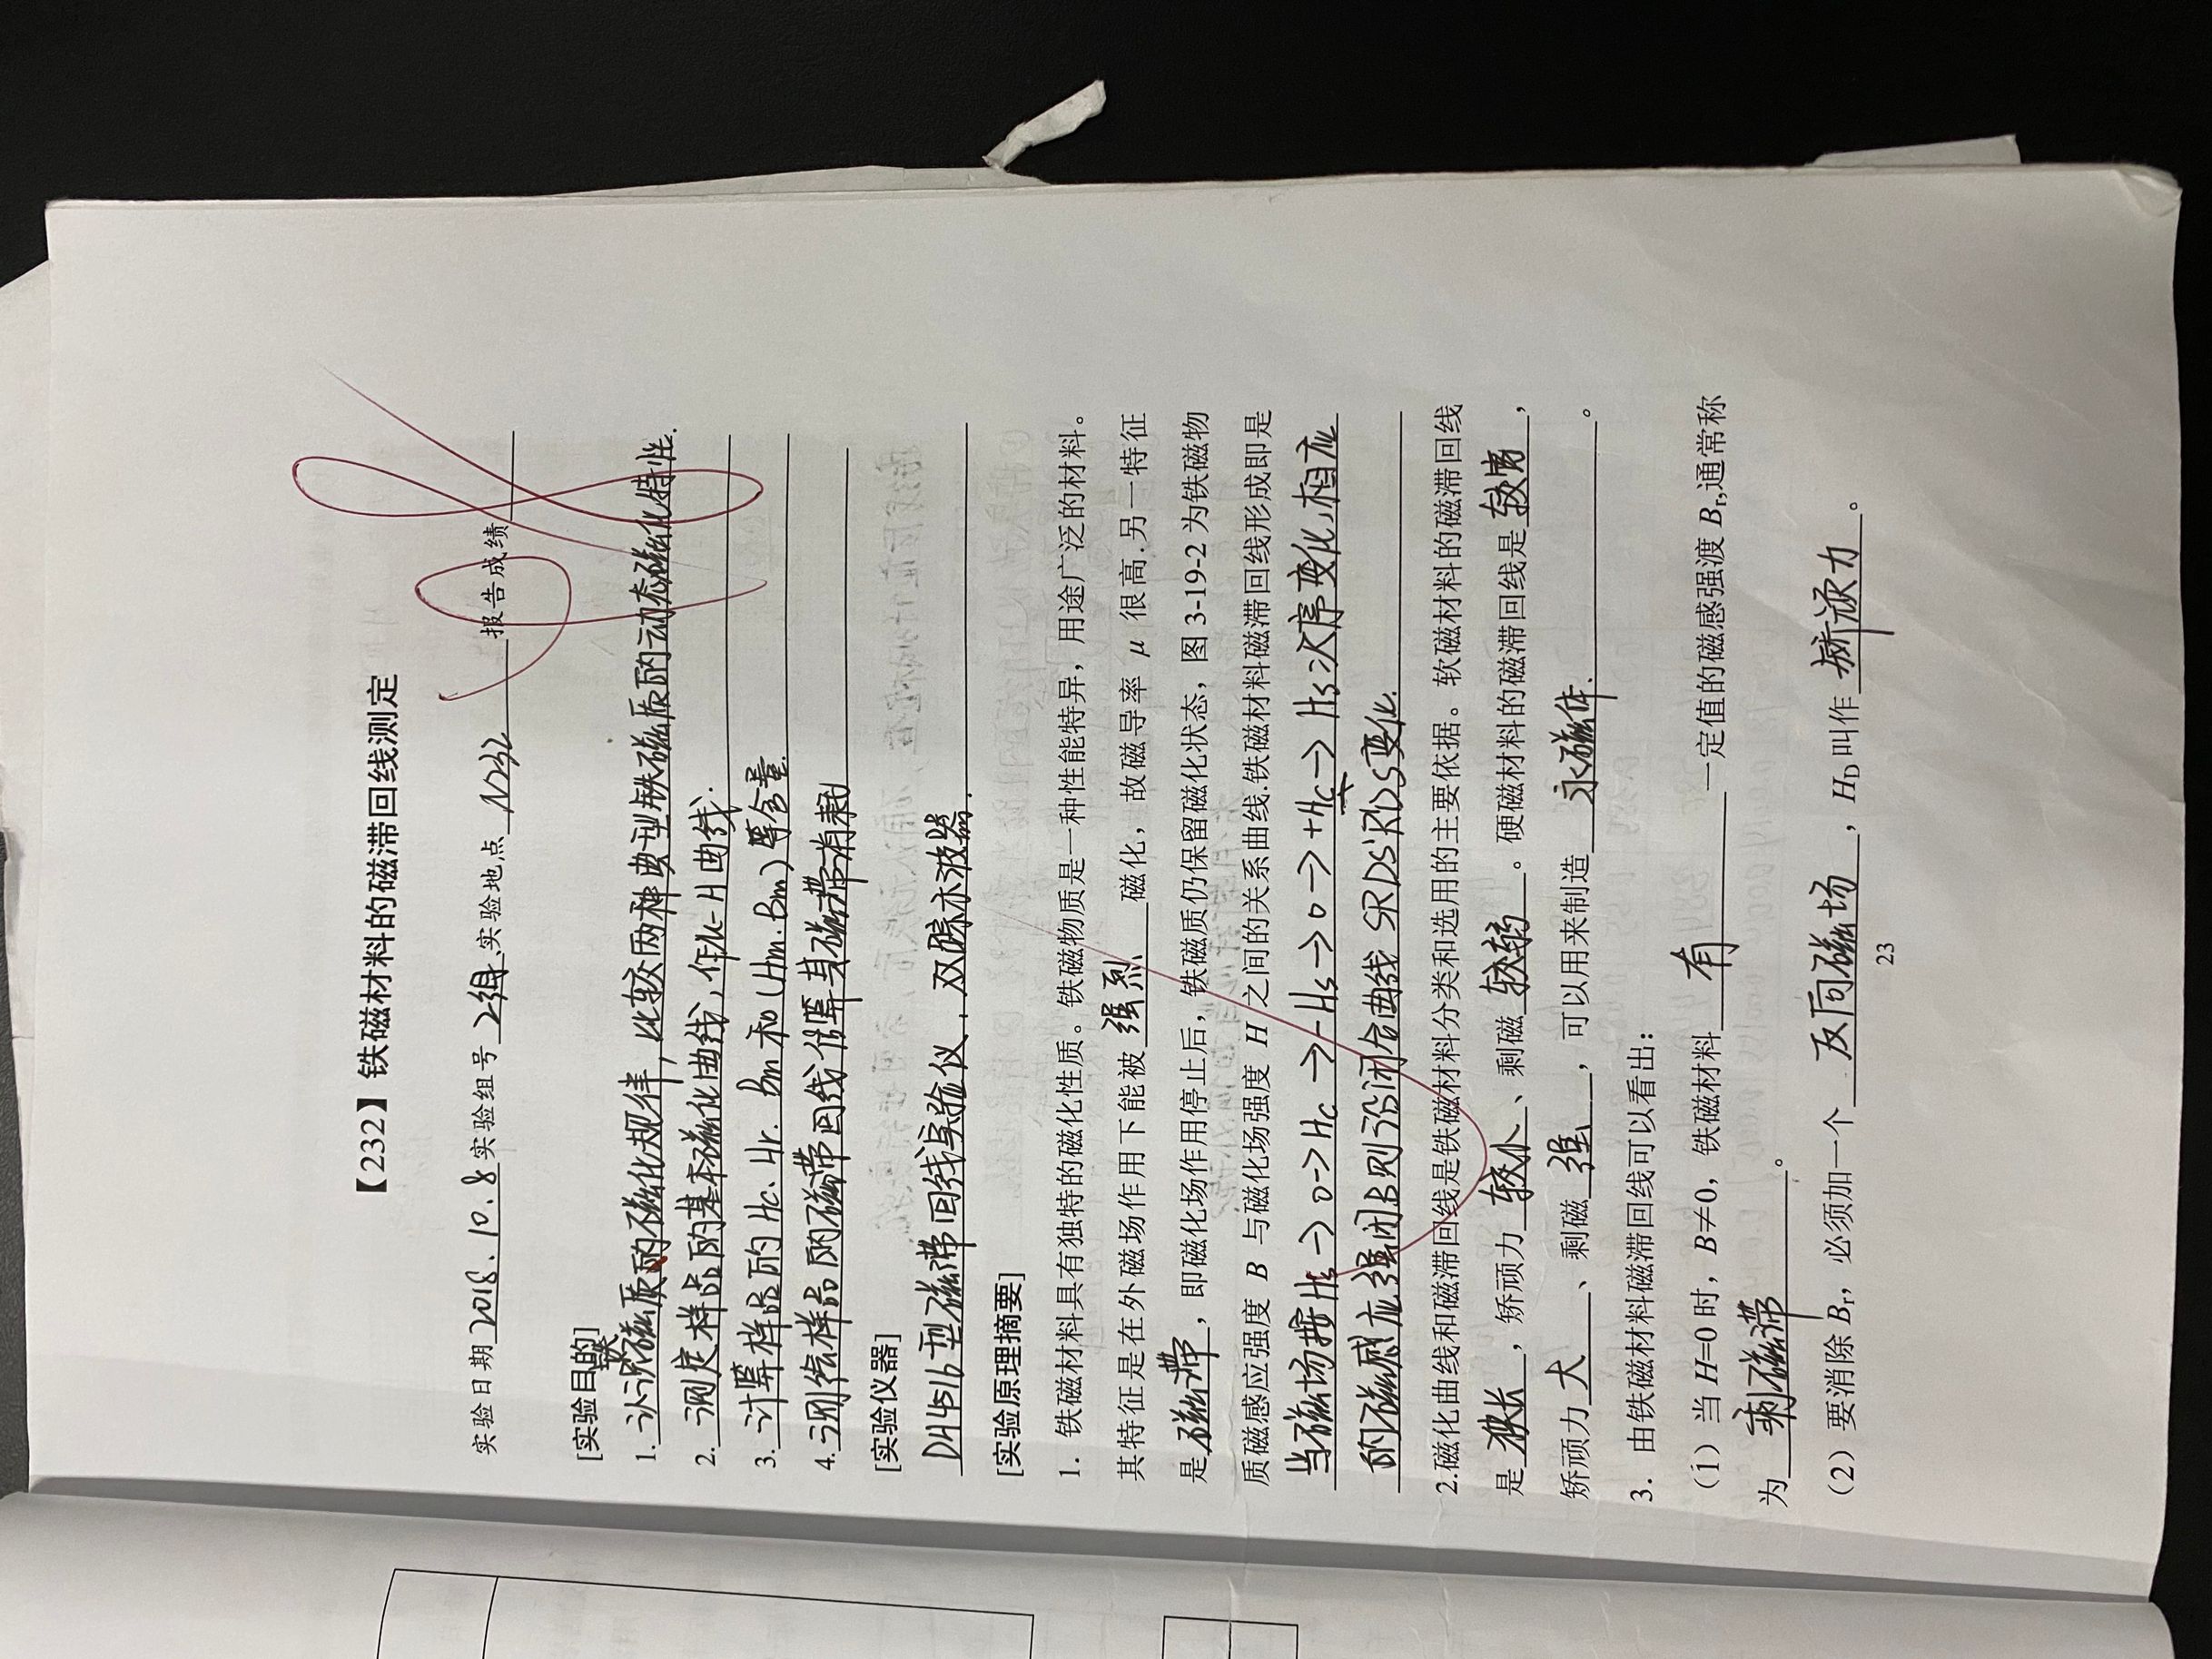 【232】铁磁材料的磁滞回线测定
实验日期 2018.10.8 实验组号 2组 实验地点 N232 报告成绩
98
[实验目的]
1. 认识铁磁质的磁化规律，比较两种典型铁磁质的动态磁化特性.
2. 测定样品的基本磁化曲线，作μ-H曲线.
3. 计算样品的Hc、Hr. Bm和(Hm.Bm)等含量.
4. 测绘样品的磁滞回线估算其磁滞消耗
[实验仪器]
DH4516型磁滞回线实验仪，双踪示波器.
[实验原理摘要]
1. 铁磁材料具有独特的磁化性质。铁磁物质是一种性能特异，用途广泛的材料。
其特征是在外磁场作用下能被 强烈 磁化，故磁导率 μ 很高.另一特征
是 磁滞 ，即磁化场作用停止后，铁磁质仍保留磁化状态，图 3-19-2 为铁磁物
质磁感应强度 B 与磁化场强度 H 之间的关系曲线.铁磁材料磁滞回线形成即是
当磁场按Hs→0→Hc→-Hs→0→+Hc→Hs次序变化，相应
的磁感应强闭B则沿闭合曲线SRDS'R'D'S变化.
2.磁化曲线和磁滞回线是铁磁材料分类和选用的主要依据。软磁材料的磁滞回线
是 狭长 ，矫顽力 较小 、剩磁 较弱 。硬磁材料的磁滞回线是 较宽 ，
矫顽力 大 、剩磁 强 ，可以用来制造 永磁体. 。
3. 由铁磁材料磁滞回线可以看出：
（1）当 H=0 时，B≠0，铁磁材料 有 一定值的磁感强渡 Br,通常称
为 剩磁滞 。
（2）要消除 Br，必须加一个 反向磁场 ，HD 叫作 矫顽力 。
23